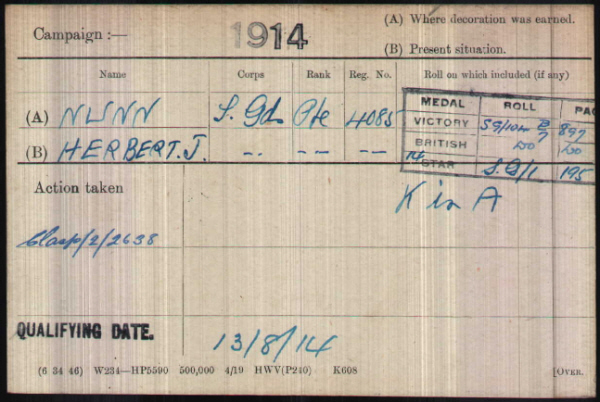 Campaign :— 1914 (A) Where decoration was earned.
(B) Present situation.
Name Corps Rank Reg. No. Roll on which included (if any)
MEDAL ROLL PAG
(A) NUNN S. Gds Pte 4085 VICTORY SG/101 B 7 897
BRITISH do do
(B) HERBERT. J. -- -- -- 14 STAR S.G/1 195
Action taken K in A
Clasp/2/2638
QUALIFYING DATE. 13/8/14
(6 34 46) W234—HP5590 500,000 4/19 HWV(P240) K608 [OVER.